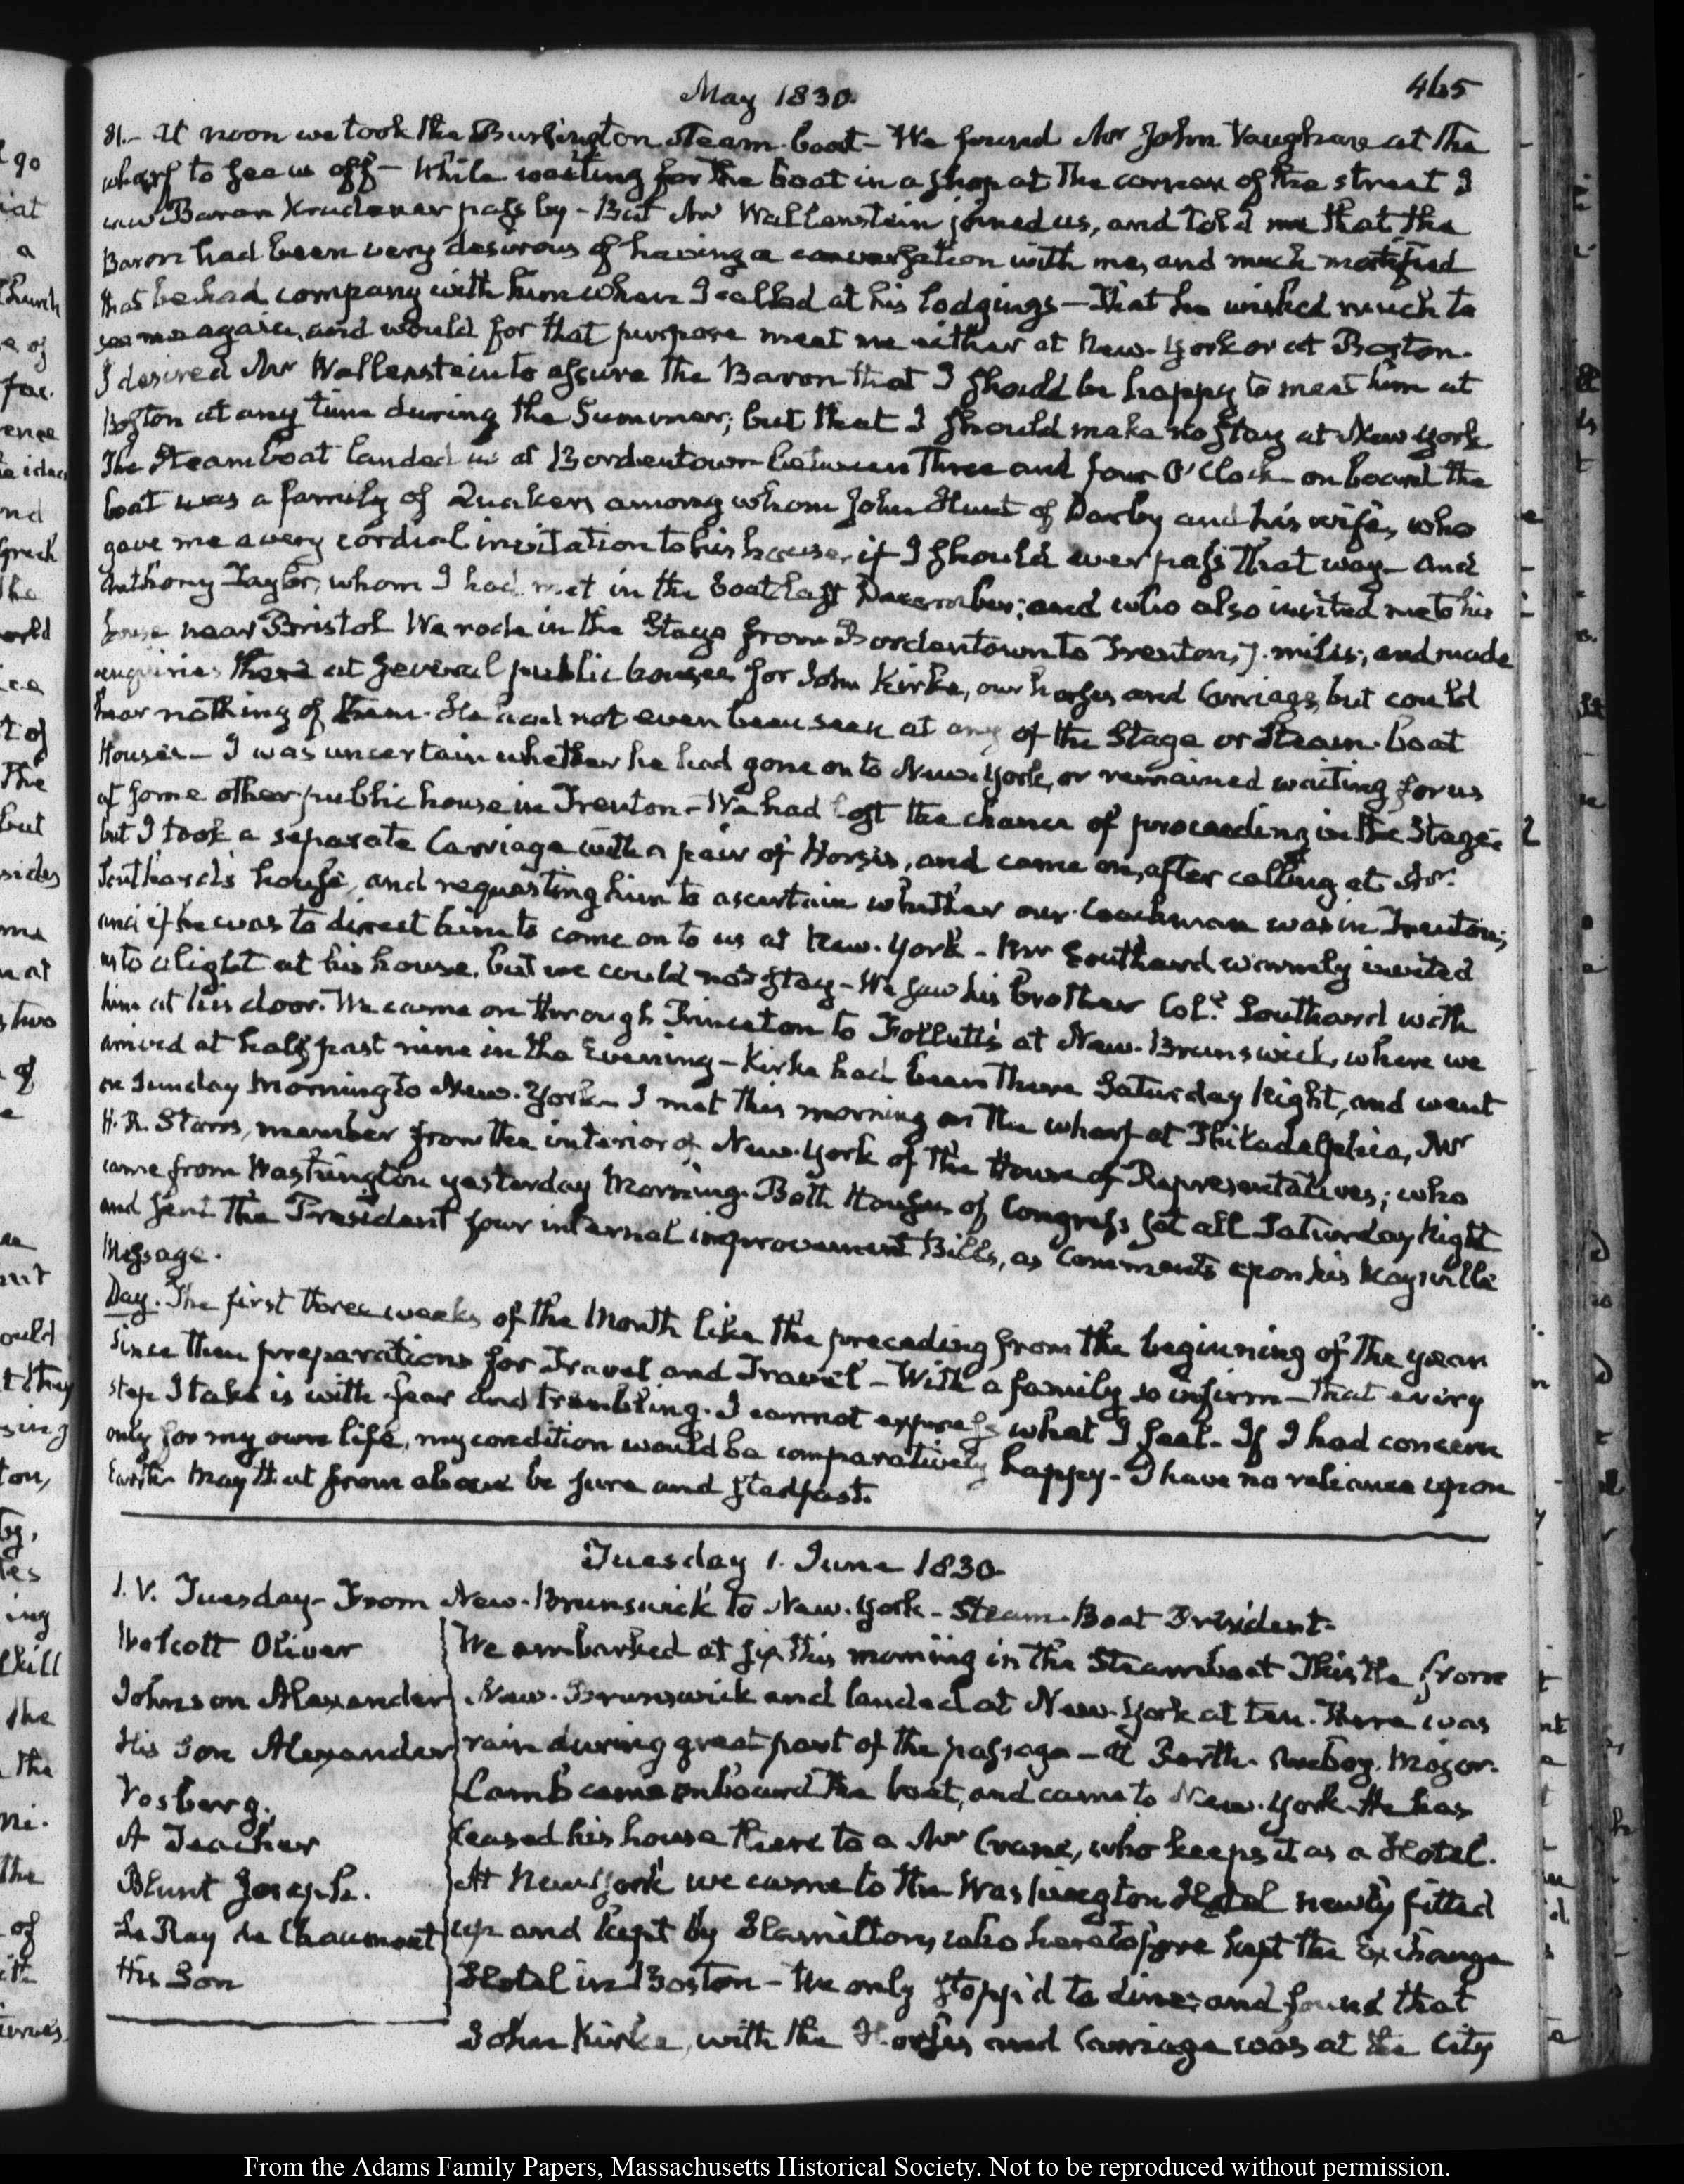 May 1830.
465
31.— At noon we took the Burlington Steam-boat — We found Mr John Vaughan at the
wharf to see us off — While waiting for the boat in a shop at the corner of the street I
saw Baron Krudener pass by — But Mr Wallenstein joined us, and told me that the
Baron had been very desirous of having a conversation with me, and much mortified
that he had company with him when I called at his lodgings — That he wished much to
see me again, and would for that purpose meet me either at New-York or at Boston.
I desired Mr Wallenstein to assure the Baron that I should be happy to meet him at
Boston at any time during the Summer; but that I should make no stay at New York.
The Steam boat landed us at Bordentown between three and four O'Clock — on board the
boat was a family of Quakers among whom John Hunt of Darby and his wife, who
gave me a very cordial invitation to his house, if I should ever pass that way — And
Anthony Taylor, whom I had met in the boat last December; and who also invited me to his
house near Bristol. We rode in the Stage from Bordentown to Trenton, 7. miles; and made
enquiries there at several public houses for John Kirke, our horses and Carriage, but could
hear nothing of them. He had not even been seen at any of the Stage or Steam-boat
Houses — I was uncertain whether he had gone on to New-York, or remained waiting for us
at some other public house in Trenton — We had lost the chance of proceeding in the Stage;
but I took a separate Carriage with a pair of Horses, and came on, after calling at Mr
Southard's house, and requesting him to ascertain whether our Coachman was in Trenton;
and if he was to direct him to come on to us at New-York — Mr Southard warmly invited
us to alight at his house, but we could not stay — We saw his brother Coll. Southard with
him at his door. We came on through Princeton to Follett's at New-Brunswick, where we
arrived at half past nine in the Evening — Kirke had been there Saturday Night, and went
on Sunday Morning to New-York — I met this morning on the wharf at Philadelphia, Mr
H. R. Storrs, member from the interior of New-York of the House of Representatives; who
came from Washington yesterday Morning. Both Houses of Congress sat all Saturday Night
and sent the President four internal improvement Bills, as Comments upon his Maysville
Message.
Day. The first three weeks of the Month like the preceding from the beginning of the year
Since then preparations for Travel and Travel — With a family so infirm — that every
step I take is with fear and trembling. I cannot express what I feel. If I had concern
only for my own life, my condition would be comparatively happy — I have no reliance upon
Earth. May that from above be sure and stedfast.
Tuesday 1. June 1830.
1. V. Tuesday — From New-Brunswick to New-York — Steam-Boat President.
Wolcott Oliver
Johnson Alexander
His Son Alexander
Vosberg.
A Teacher
Blunt Joseph.
Le Ray de Chaumont
His Son
We embarked at six this morning in the Steamboat Thistle from
New-Brunswick and landed at New-York at ten. There was
rain during great part of the passage — at Perth-Amboy. Major
Lamb came on board the boat, and came to New-York. He has
leased his house there to a Mr Crane, who keeps it as a Hotel.
At New York we came to the Washington Hotel newly fitted
up and kept by Hamilton, who heretofore kept the Exchange
Hotel in Boston — We only stopp'd to dine; and found that
John Kirke, with the Horses and Carriage was at the City
From the Adams Family Papers, Massachusetts Historical Society. Not to be reproduced without permission.